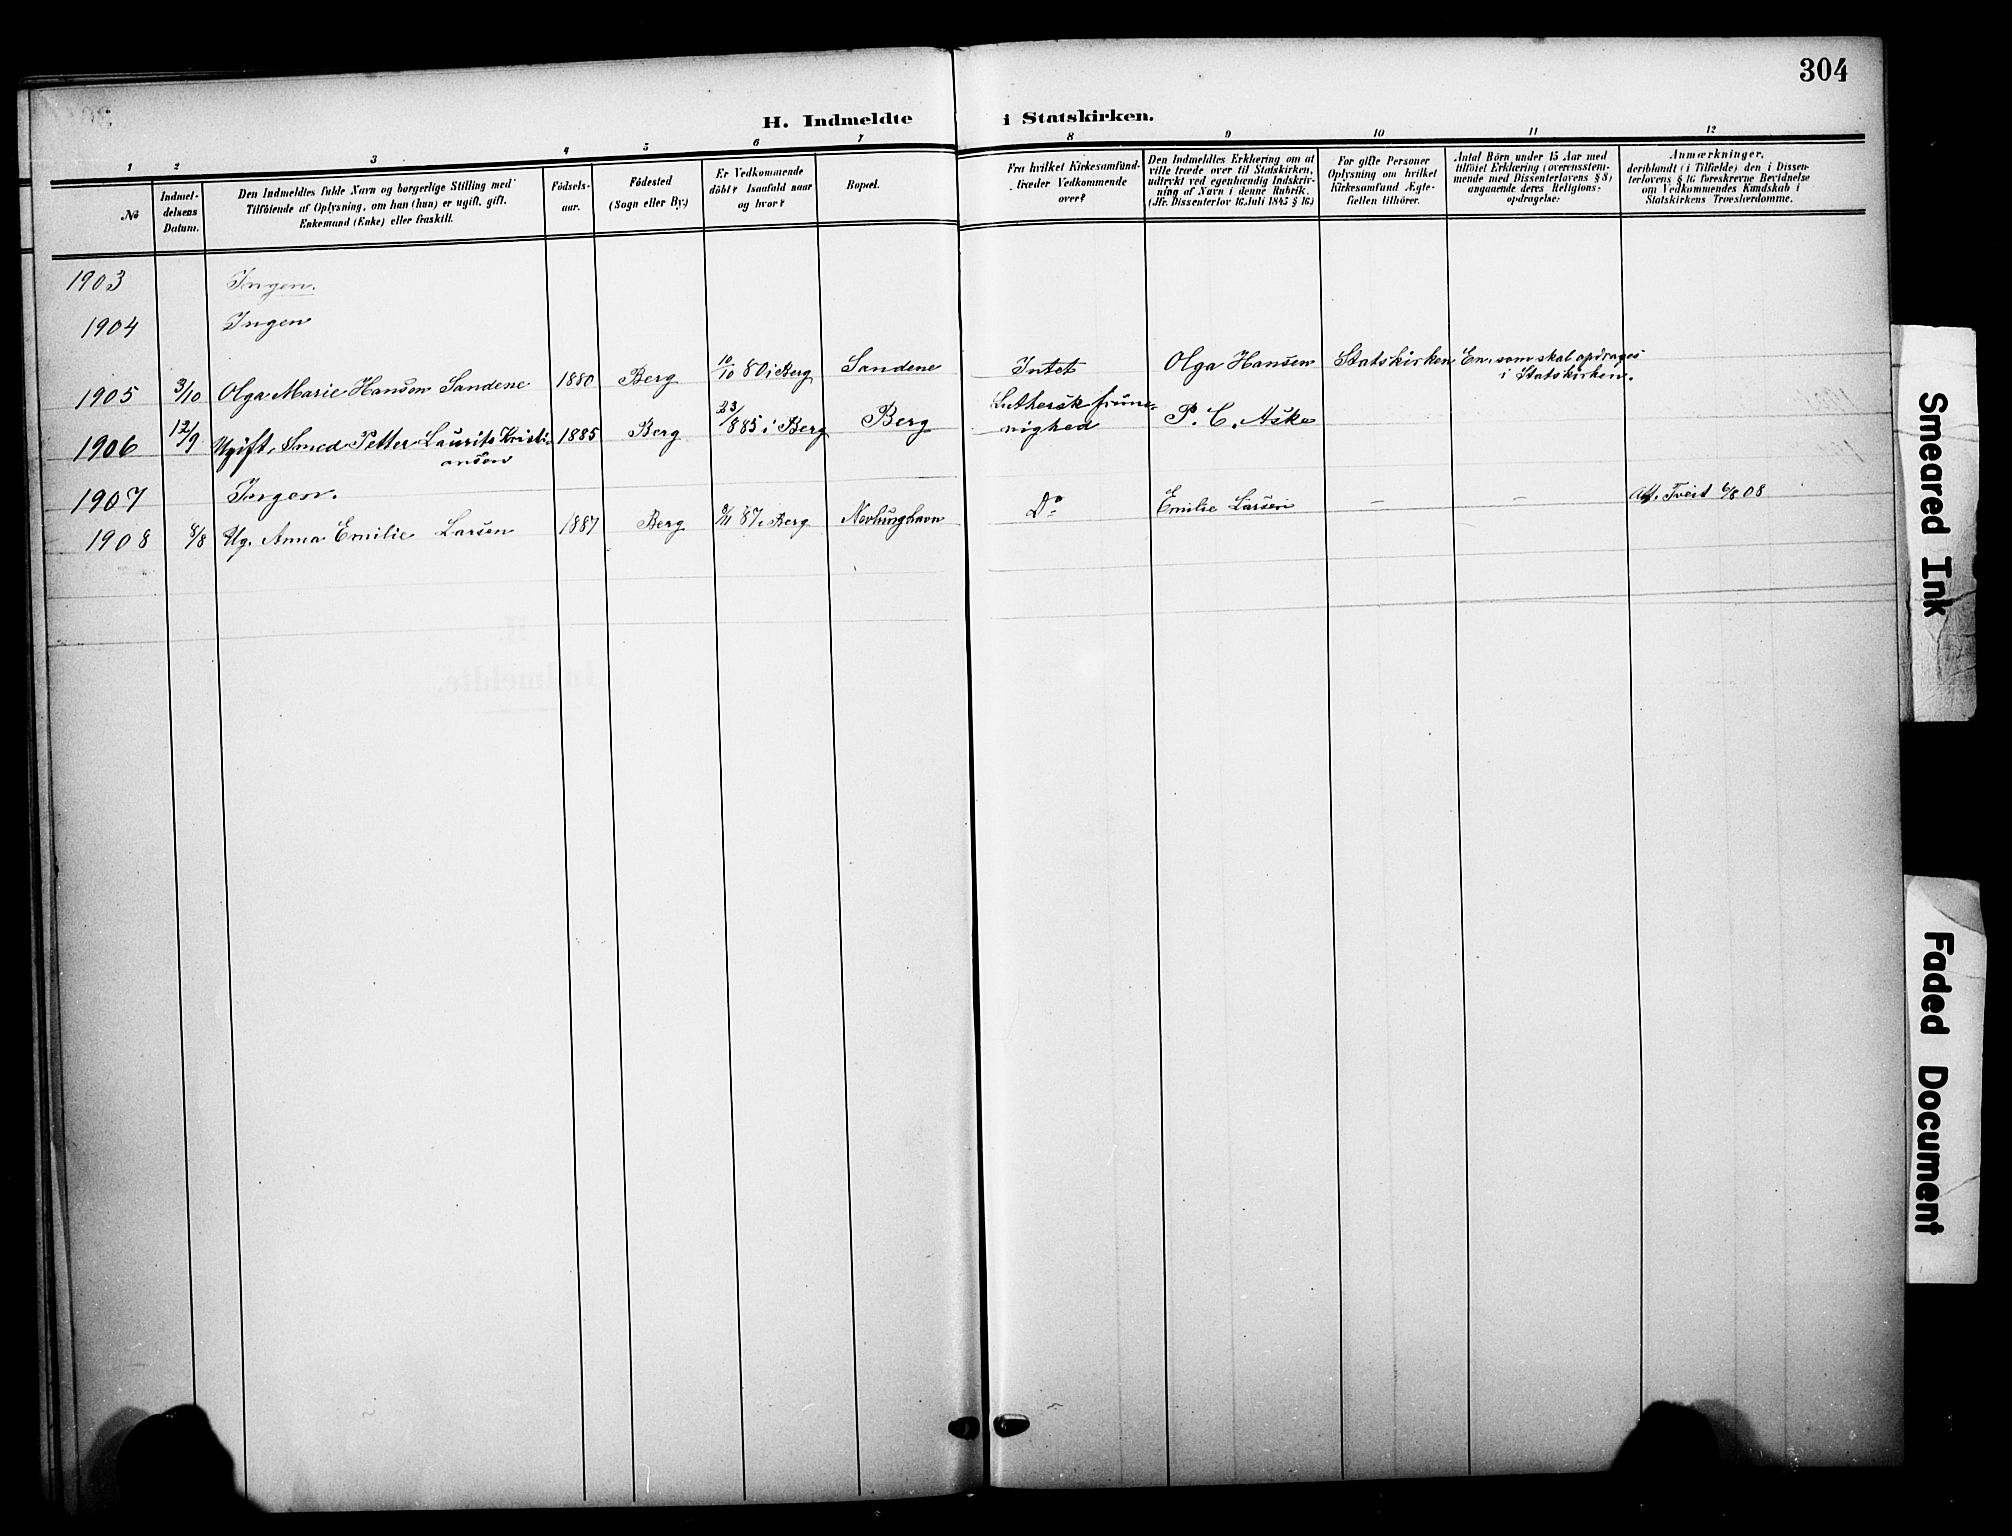 304
H. Indmeldte i Statskirken.
1 2 3 4 5 6 7 8 9 10 11 12
No
Indmel-
delsens
Datum.
Den Indmeldtes fulde Navn og borgerlige Stilling med
Tilföiende af Oplysning, om han (hun) er ugift, gift,
Enkemand (Enke) eller fraskilt.
Födsels-
aar.
Födested
(Sogn eller By.)
Er Vedkommende
döbt? Isaafald naar
og hvor?
Bopæl.
Fra hvilket Kirkesamfund
træder Vedkommende
over?
Den Indmeldtes Erklæring om at
ville træde over til Statskirken,
udtrykt ved egenhændig Indskriv-
ning af Navn i denne Rubrik.
(Jfr. Dissenterlov 16. Juli 1845 § 16.)
For gifte Personer
Oplysning om hvilket
Kirkesamfund Ægte-
fællen tilhörer.
Antal Börn under 15 Aar med
tilföiet Erklæring (overensstem-
mende med Dissenterlovens § 8)
angaaende deres Religions-
opdragelse.
Anmærkninger,
deriblandt (i Tilfælde) den i Dissen-
terlovens § 16 foreskrevne Bevidnelse
om Vedkommendes Kundskab i
Statskirkens Troeslærdomme.
1903 Ingen.
1904 Ingen
1905 3/10 Olga Marie Hansen Sandene 1880 Berg 10/10 80 i Berg Sandene Intet Olga Hansen Statskirken En, som skal opdrages
i Statskirken.
1906 12/9 Ugift, Smed Petter Laurits Kristi-
ansen 1885 Berg 23/8 85 i Berg Berg Luthersk frime-
nighed P. C. Aske
1907 Ingen.
1908 8/8 Ug. Anna Emilie Larsen 1887 Berg 87 i Berg Nevlunghavn Do Emilie Larsen - - Att. Tveit 6/8 08
Smeared Ink
Faded Document